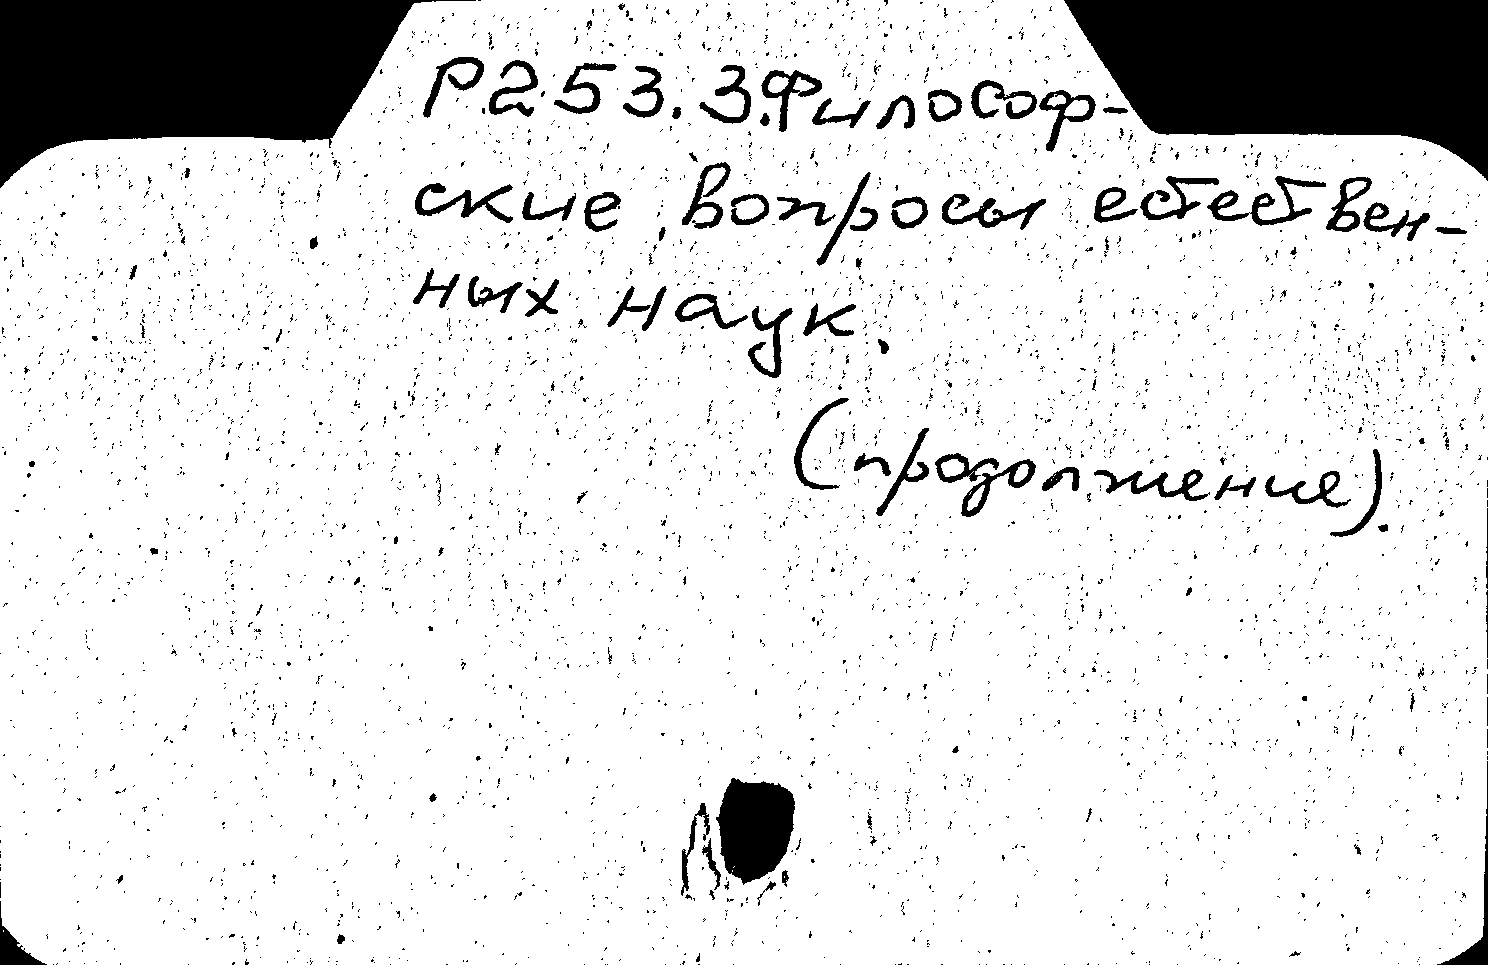 Р253.3.Философ-
ские вопросы естествен-
ных наук.
(продолжение).